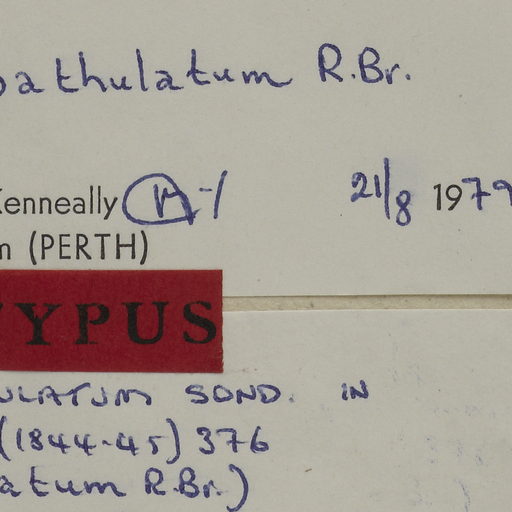 pathulatum R.Br.
Kenneally 21/8 1979
m (PERTH)
TYPUS
ULATUM SOND. IN
(1844-45) 376
atum R.Br.)